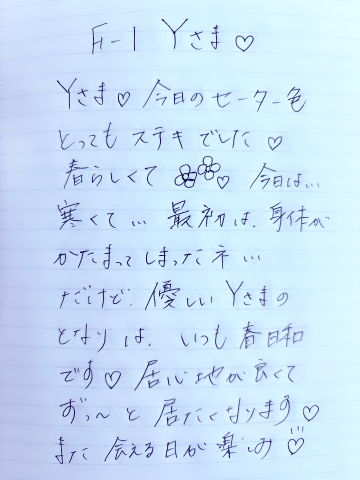 F-1 Yさま♡
Yさま♡今日のセーター色
とっても ステキ でした♡
春らしくて ♡ 今日は…
寒くて… 最初は、身体が
かたまってしまったネ…
だけど、優しいYさまの
となりは、いつも春日和
です♡ 居心地が良くて
ずっ〜と居たくなります♡
また会える日が楽しみ♡